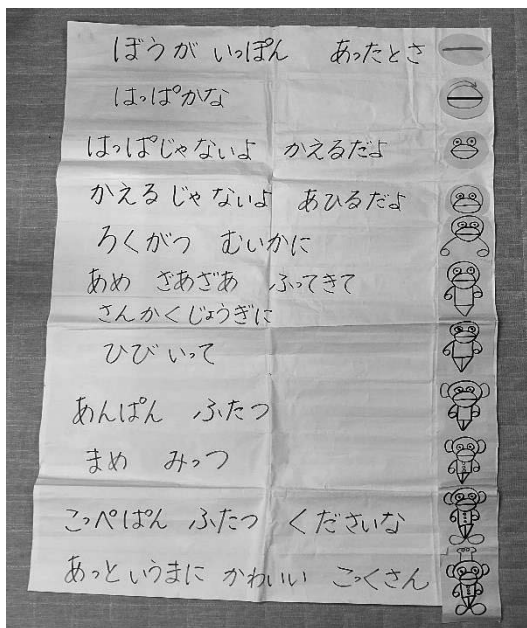 ぼうが いっぽん あったとさ
はっぱかな
はっぱじゃないよ かえるだよ
かえるじゃないよ あひるだよ
ろくがつ むいかに
あめ ざあざあ ふってきて
さんかくじょうぎに
ひび いって
あんぱん ふたつ
まめ みっつ
こっぺぱん ふたつ くださいな
あっというまに かわいい こっくさん